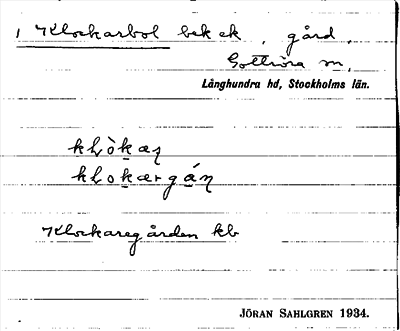 1 Klockarbol bek ek, gård,
Gottröra sn,
Långhundra hd, Stockholms län.
Klockaregården kb
JÖRAN SAHLGREN 1934.